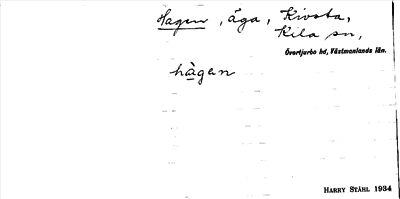 Hagen, äga, Kivsta,
Kila sn,
Övertjurbo hd, Västmanlands län.
hàgen
HARRY STÅHL 1934